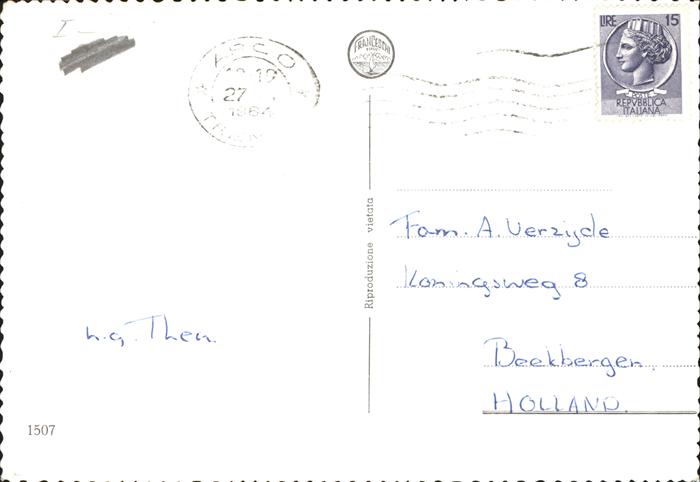 I -
ARCO
27
1964
FRANCESCHI
LIRE 15
POSTE
REPVBBLICA
ITALIANA
Riproduzione vietata
Fam. A. Verzijde
Koningsweg 8
Beekbergen.
HOLLAND.
h.g. Theu.
1507